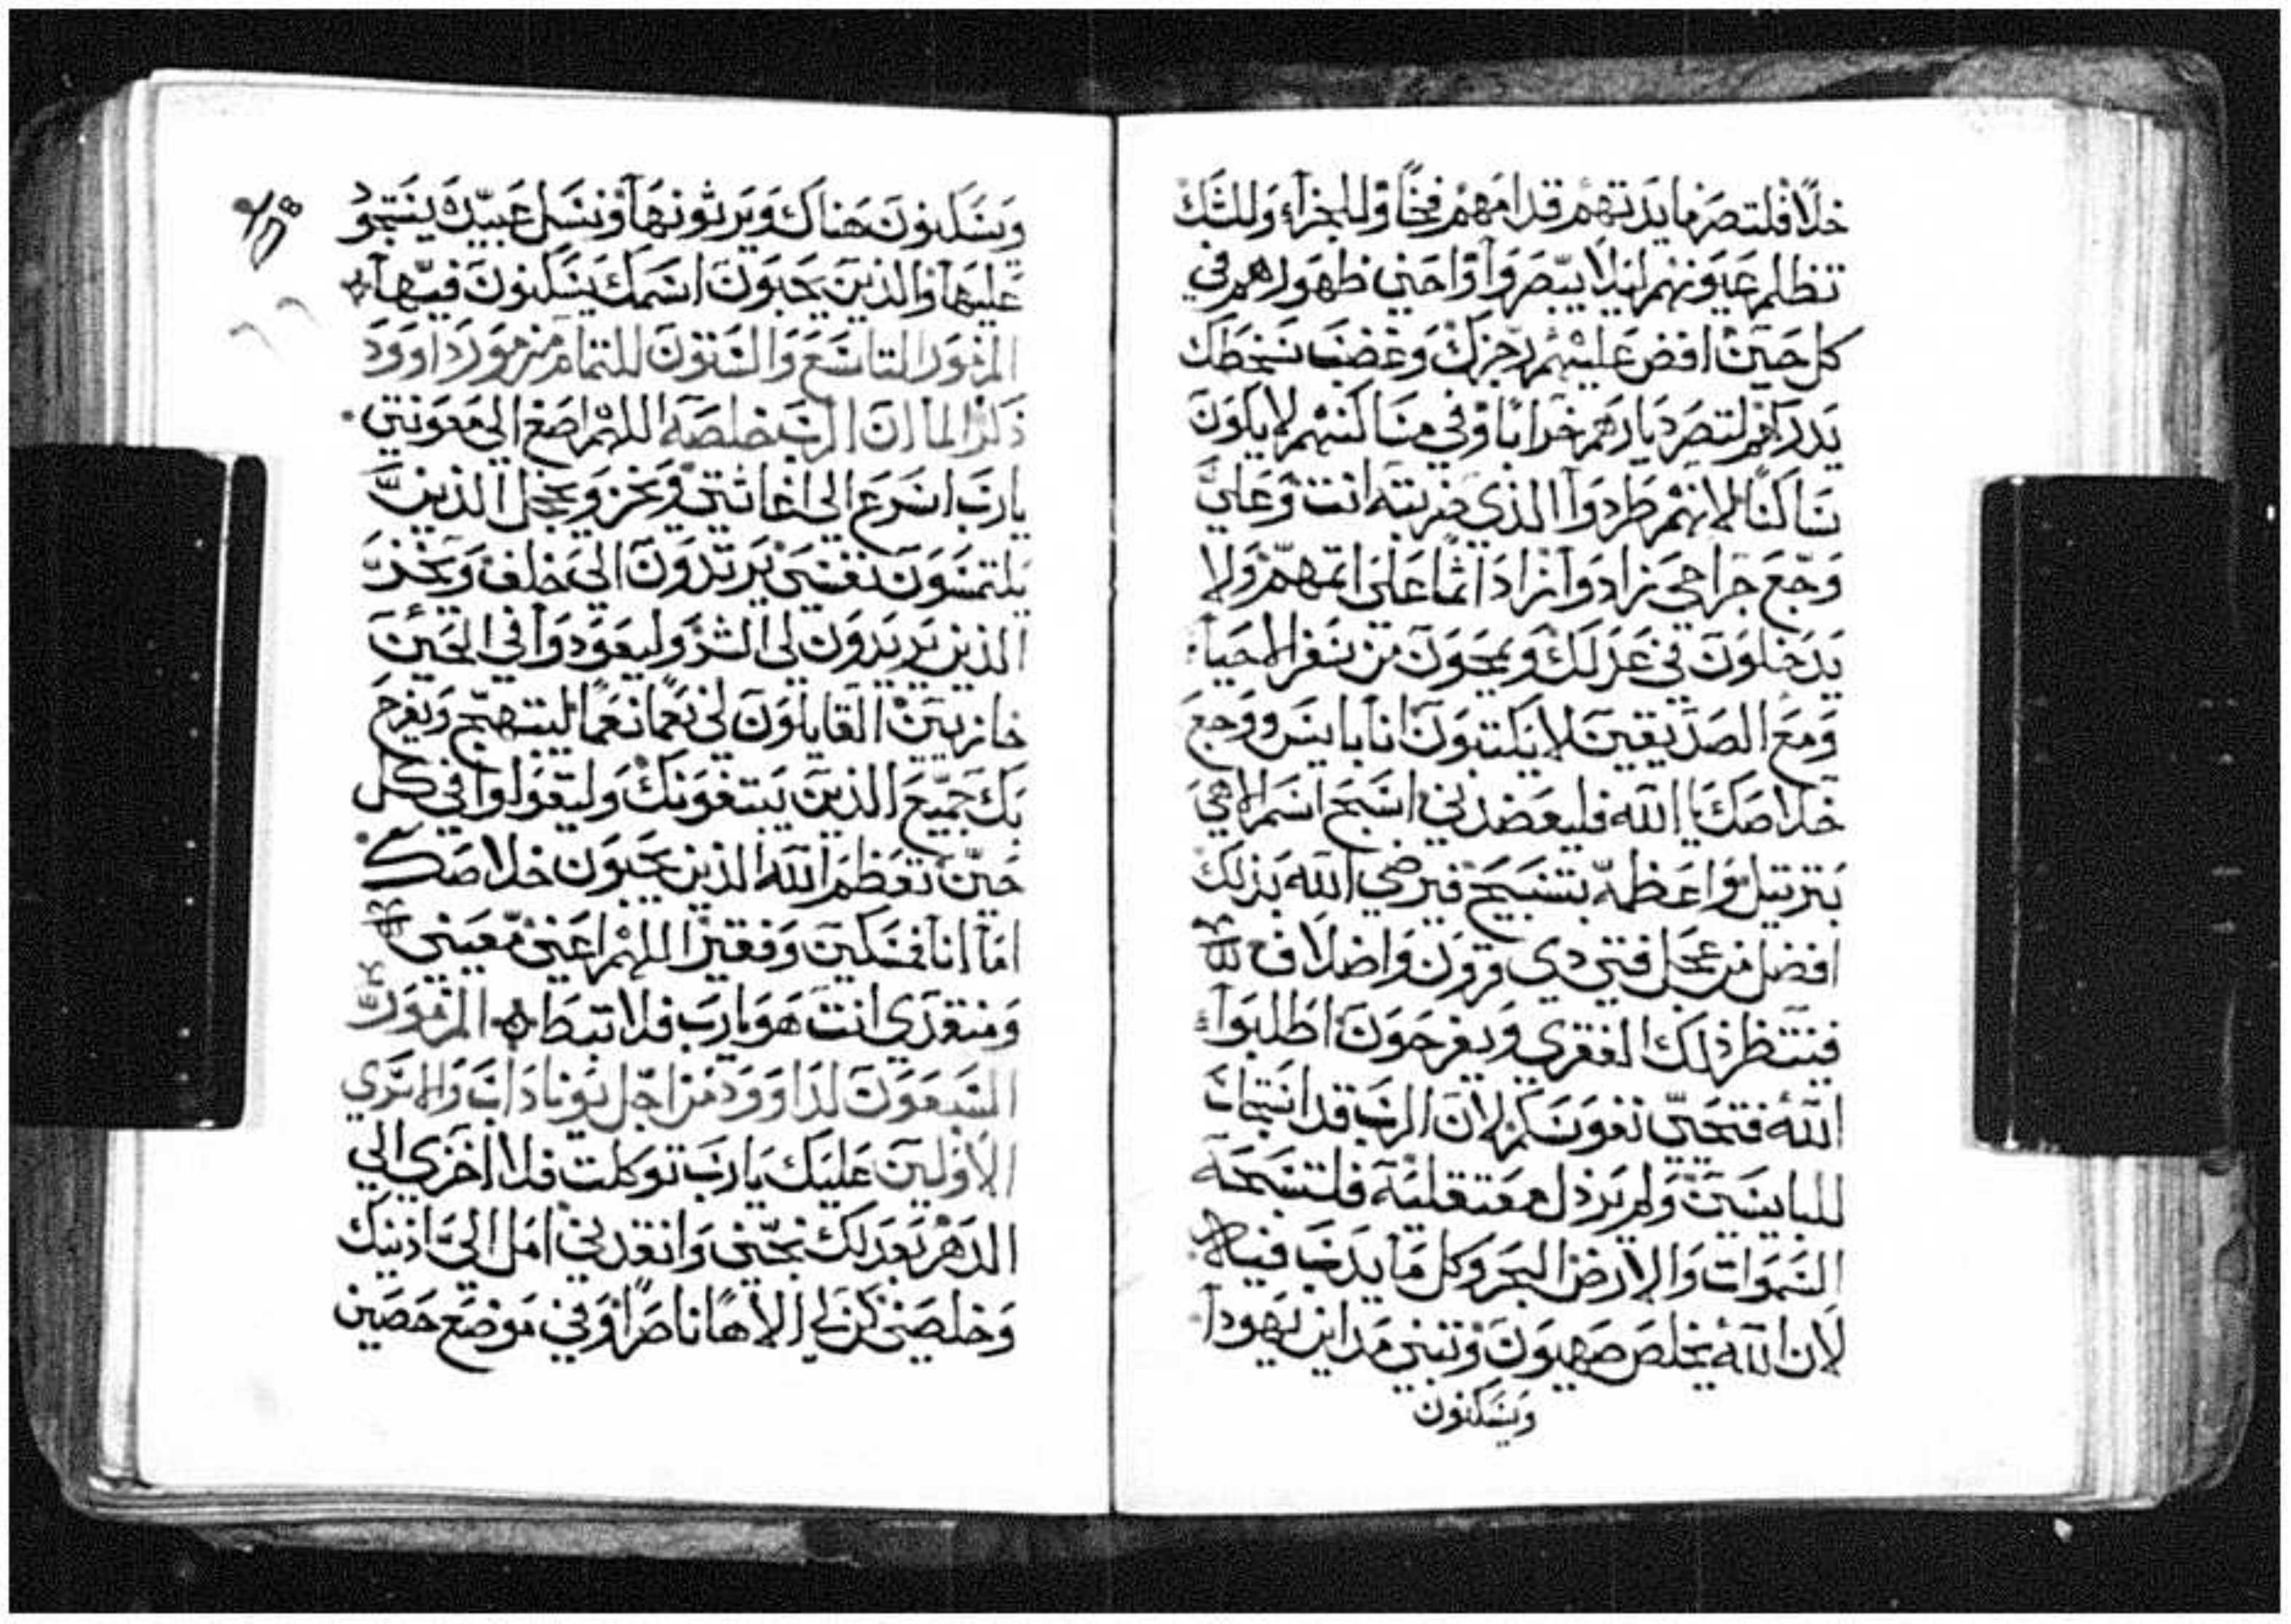 خلًا فلتصر مايدتهم قدامهم فخًا وللجزآء وللشك
تظلم عيونهم ليلا يبصروآ واحني ظهورهم في
كل حين افض عليهم رجزك وغضب سخطك
يدركهم لتصر ديارهم خرابًا وفي مساكنهم لا يكون
ساكنًا لانهم طردوآ الذي ضربته انت وعلي
وجع جراحي زادوآ زاد اثمًا علي اثمهم ولا
يدخلون في عدلك ويمحون من سفر الاحيآء
ومع الصديقين لا يكتبون انا بايس ووجع
خلاصك يا الله فليعضدني اسبح اسم الاهي
بترتيل واعظمه بتسبيح فيرضي الله بذلك
افضل من عجل فتي ذي قرون واضلاف
فينتظر ذلك الفقري ويفرحون اطلبوآ
الله فتحيي نفوسكم لان الرب قد استجاب
للبايسين ولم يرذل معتقليه فلتسبحه
السموات والارض البحر وكل ما يدب فيها
لان الله يخلص صهيون وتبني مداين يهودآ
ويسكنون
ويسكنون هناك ويرثونها ونسل عبيدك يستحوذ
عليها والذين يحبون اسمك يسكنون فيها
المزمور التاسع والستون للتمام مزمور داوود
ذكرًا لما ان الرب خلصه اللهم اصغ الي معونتي
يارب اسرع الي اغاثتي ويخز ويخجل الذين
يلتمسون نفسي يرتدون الي خلف ويخز
الذين يريدون لي الشر وليعودوآ في الحين
خازيين القايلون لي نعمًا نعمًا ليبتهج ويفرح
بك جميع الذين يبتغونك وليقولوا في كل
حين تعظم الله الذين يحبون خلاصك
امآ انا فمسكين وفقير اللهم اعني معيني
ومنقذي انت هو يارب فلا تبطا المزمور
السبعون لداوود من اجل يوناداب والاسري
الاولين عليك يارب توكلت فلا اخزي الي
الدهر بعدلك نجني وانقذني امل الي اذنيك
وخلصني كن لي الاهًا ناصرًا وفي موضع حصين